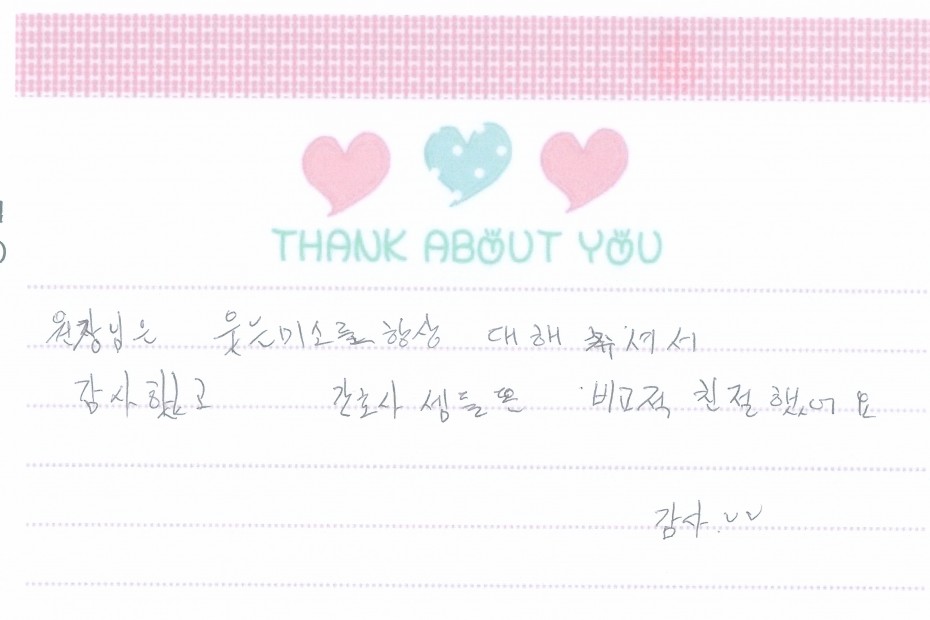 THANK ABOUT YOU
원장님은 웃는미소로 항상 대해 주셔서
감사했고 간호사 쌤들또 비고적 친절했어요
감사.ᴗᴗ